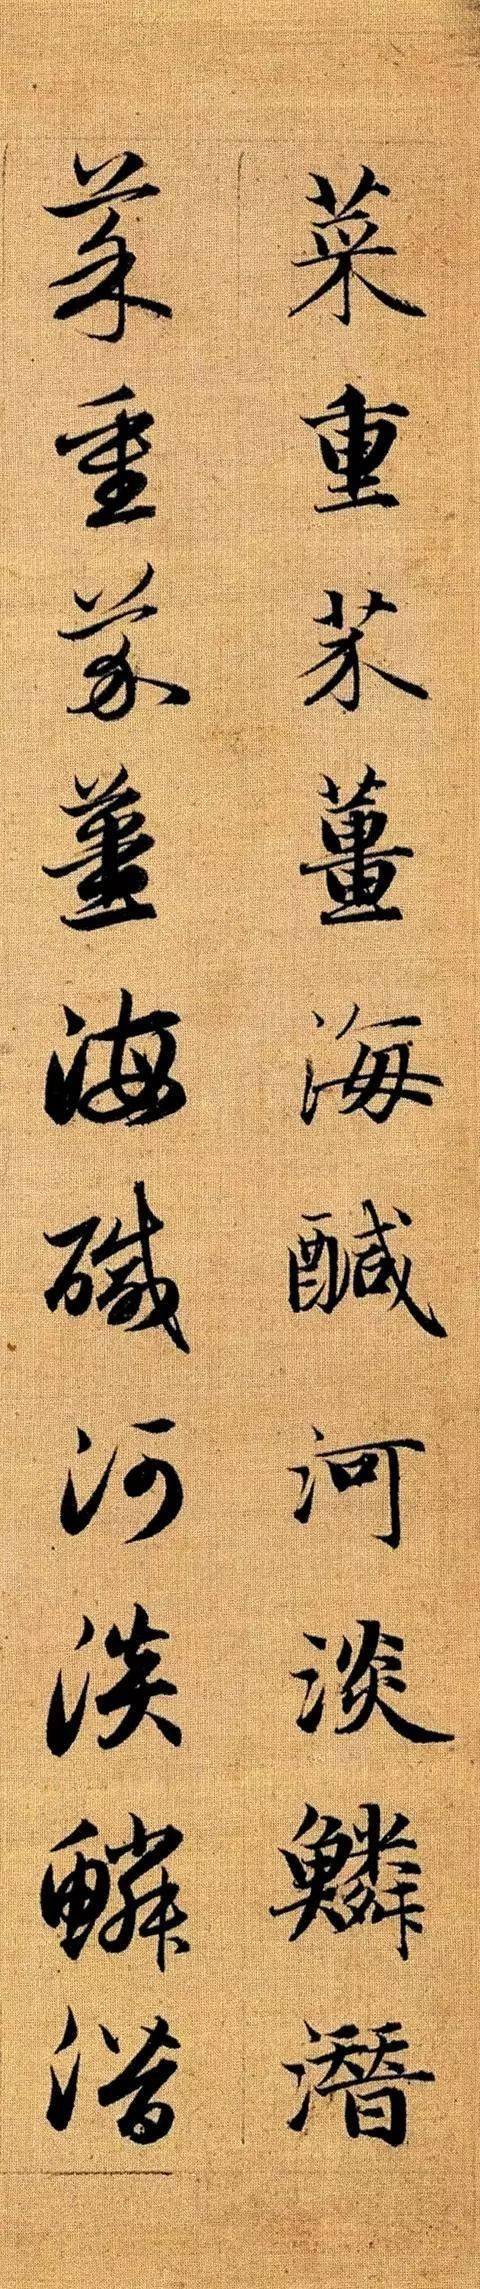 菜重芥薑海醎河淡鱗潛
菜重芥薑海醎河淡鱗潛